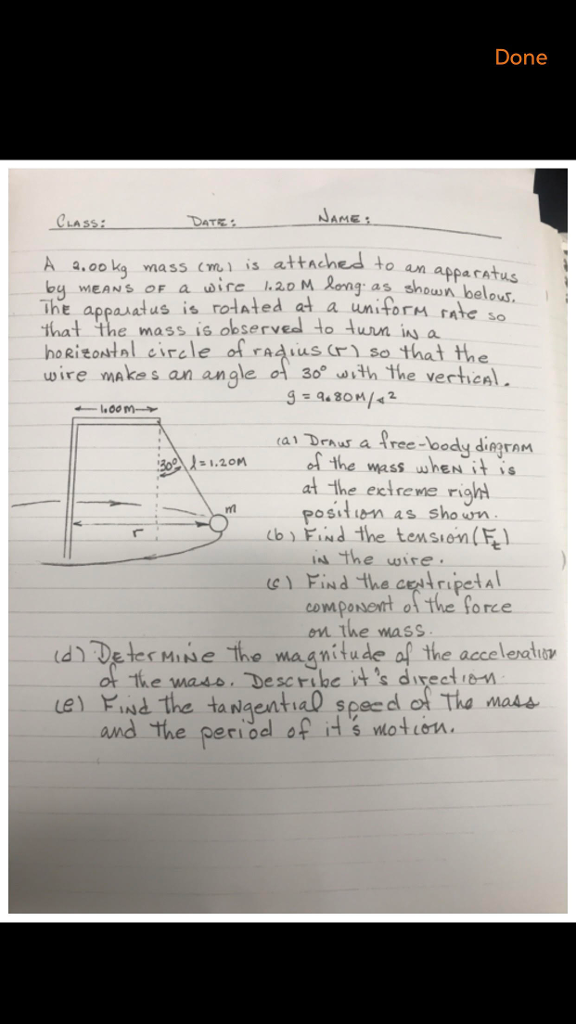 Done
CLASS: DATE: NAME:
A 2.00 kg mass (m) is attached to an apparatus
by means of a wire 1.20 M long as shown below.
The apparatus is rotated at a uniform rate so
that the mass is observed to turn in a
horizontal circle of radius (r) so that the
wire makes an angle of 30° with the vertical.
g = 9.80 M/s2
1.00 m
30° l = 1.20M
m
r
(a) Draw a free-body diagram
of the mass when it is
at the extreme right
position as shown.
(b) Find the tension (Ft)
in the wire.
(c) Find the centripetal
component of the force
on the mass.
(d) Determine the magnitude of the acceleration
of the mass. Describe it's direction.
(e) Find the tangential speed of The mass
and the period of it's motion.